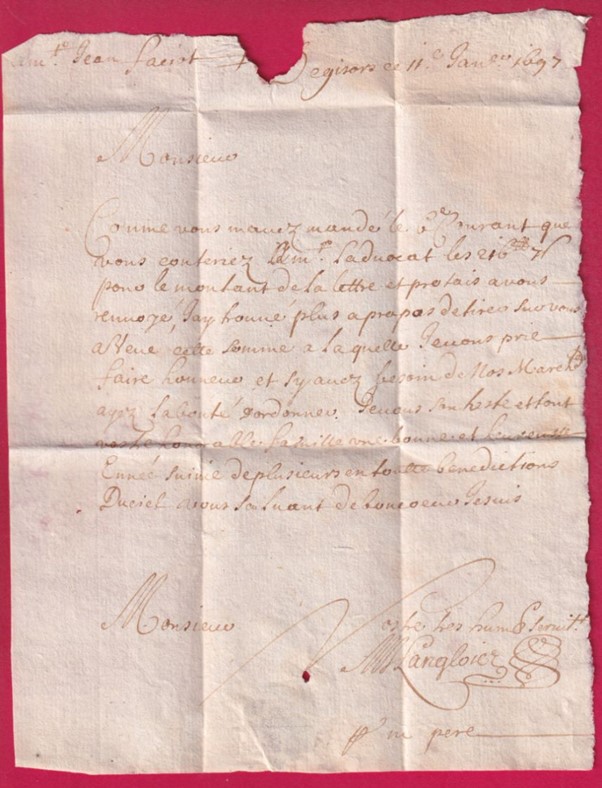 Jean faciot Degisors ce 11e Janer 1697
Monsieur
Comme vous mavez mandé le 6e Courant que
vous conteriez A mr. Ladvocat les 216
pour le montant de la lettre et protais a vous
renvoyé, Jay trouvé plus a propos de tirer sur vous
a Veue cette somme a laquelle Jevous prie
faire honneur et sy avez besoin de Nos March
ayez labonté dordonner Jevous souheste et tout
vostre honorable famille une bonne et heureuse
Ennée suivie de plusieurs en toutte benedictions
Duciel avous saluant de bon coeur Jesuis
Monsieur
Vostre tres humble servitr
Langlois
pr m pere